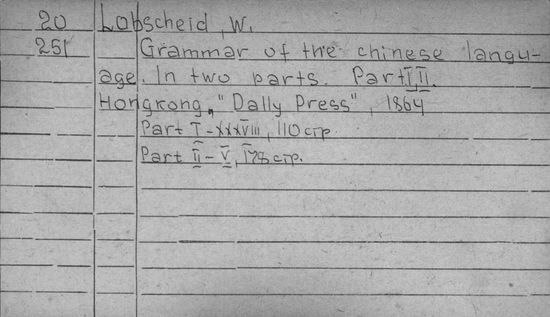 20 Lobscheid, W.
251 Grammar of the chinese langu-
age. In two parts. Part I, II.
Hongkong, "Dally Press", 1864
Part I-XXXVIII, 110 стр.
Part II-V, 178 стр.